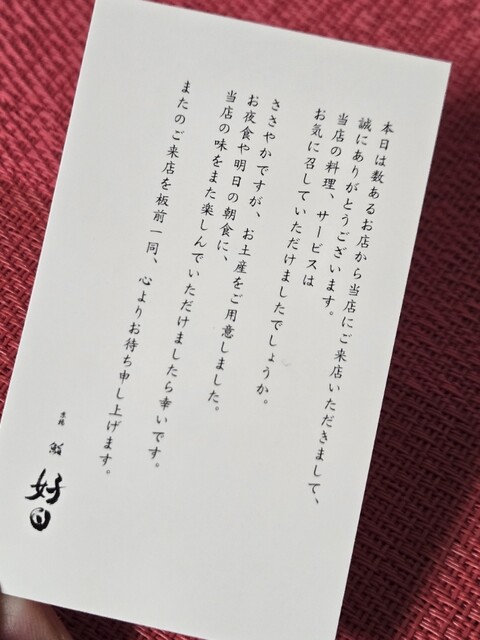 本日は数あるお店から当店にご来店いただきまして、
誠にありがとうございます。
当店の料理、サービスは
お気に召していただけましたでしょうか。
ささやかですが、お土産をご用意しました。
お夜食や明日の朝食に、
当店の味をまた楽しんでいただけましたら幸いです。
またのご来店を板前一同、心よりお待ち申し上げます。
鮨
好